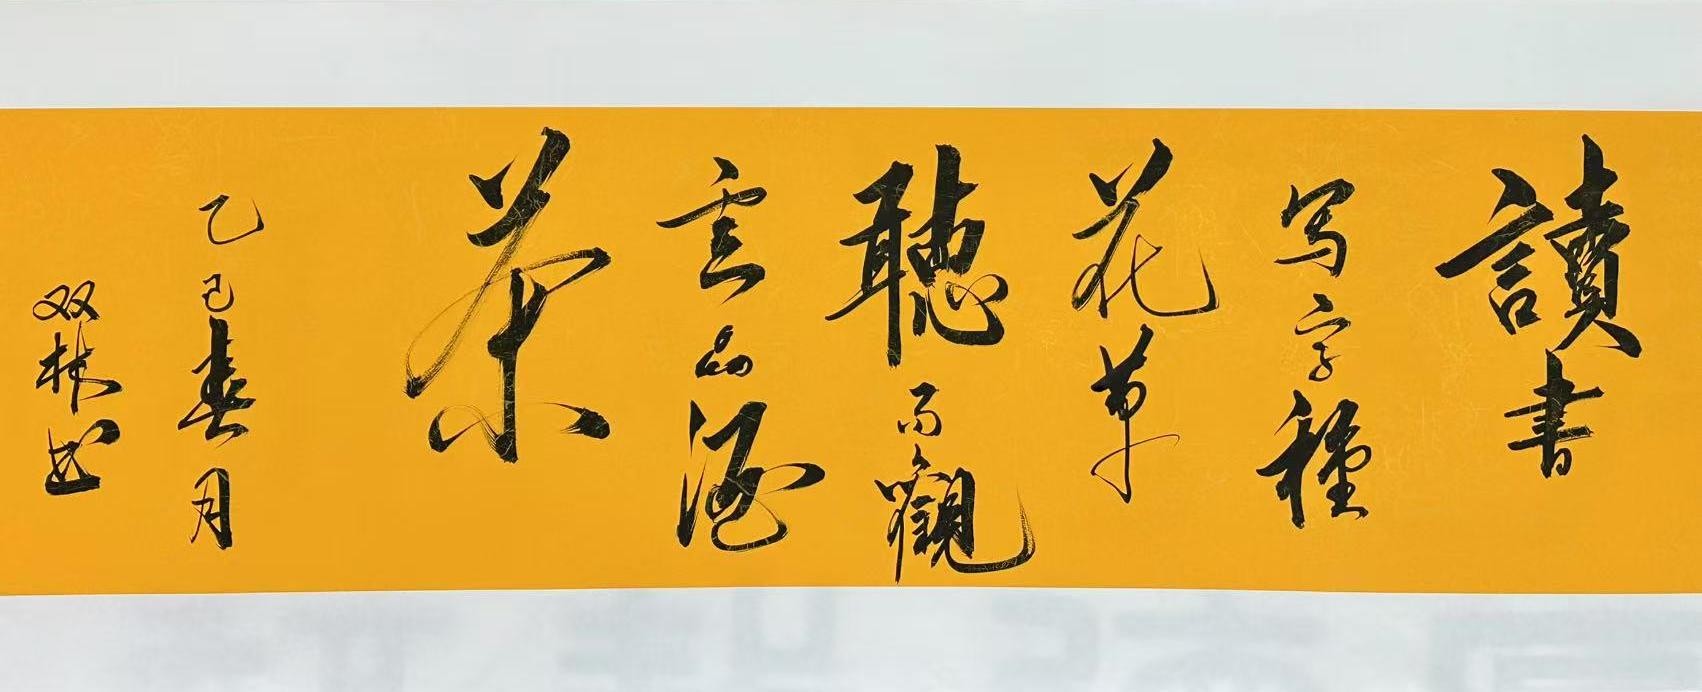 讀書
写字種
花草
聽雨觀
雲品酒
茶
乙巳春月
双林书